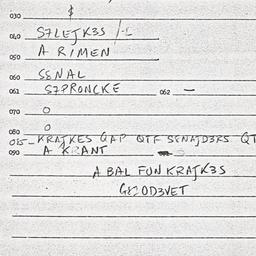 030
040 S7LEJK3S
050 A RIMEN
060 SSNAL
061 S7PRONCKE 062 —
070 O
080 O
085- KRAJKES GAP QTF SENAJD3RS QT
090 A KRANT
A BAL FUN KRAJK3S